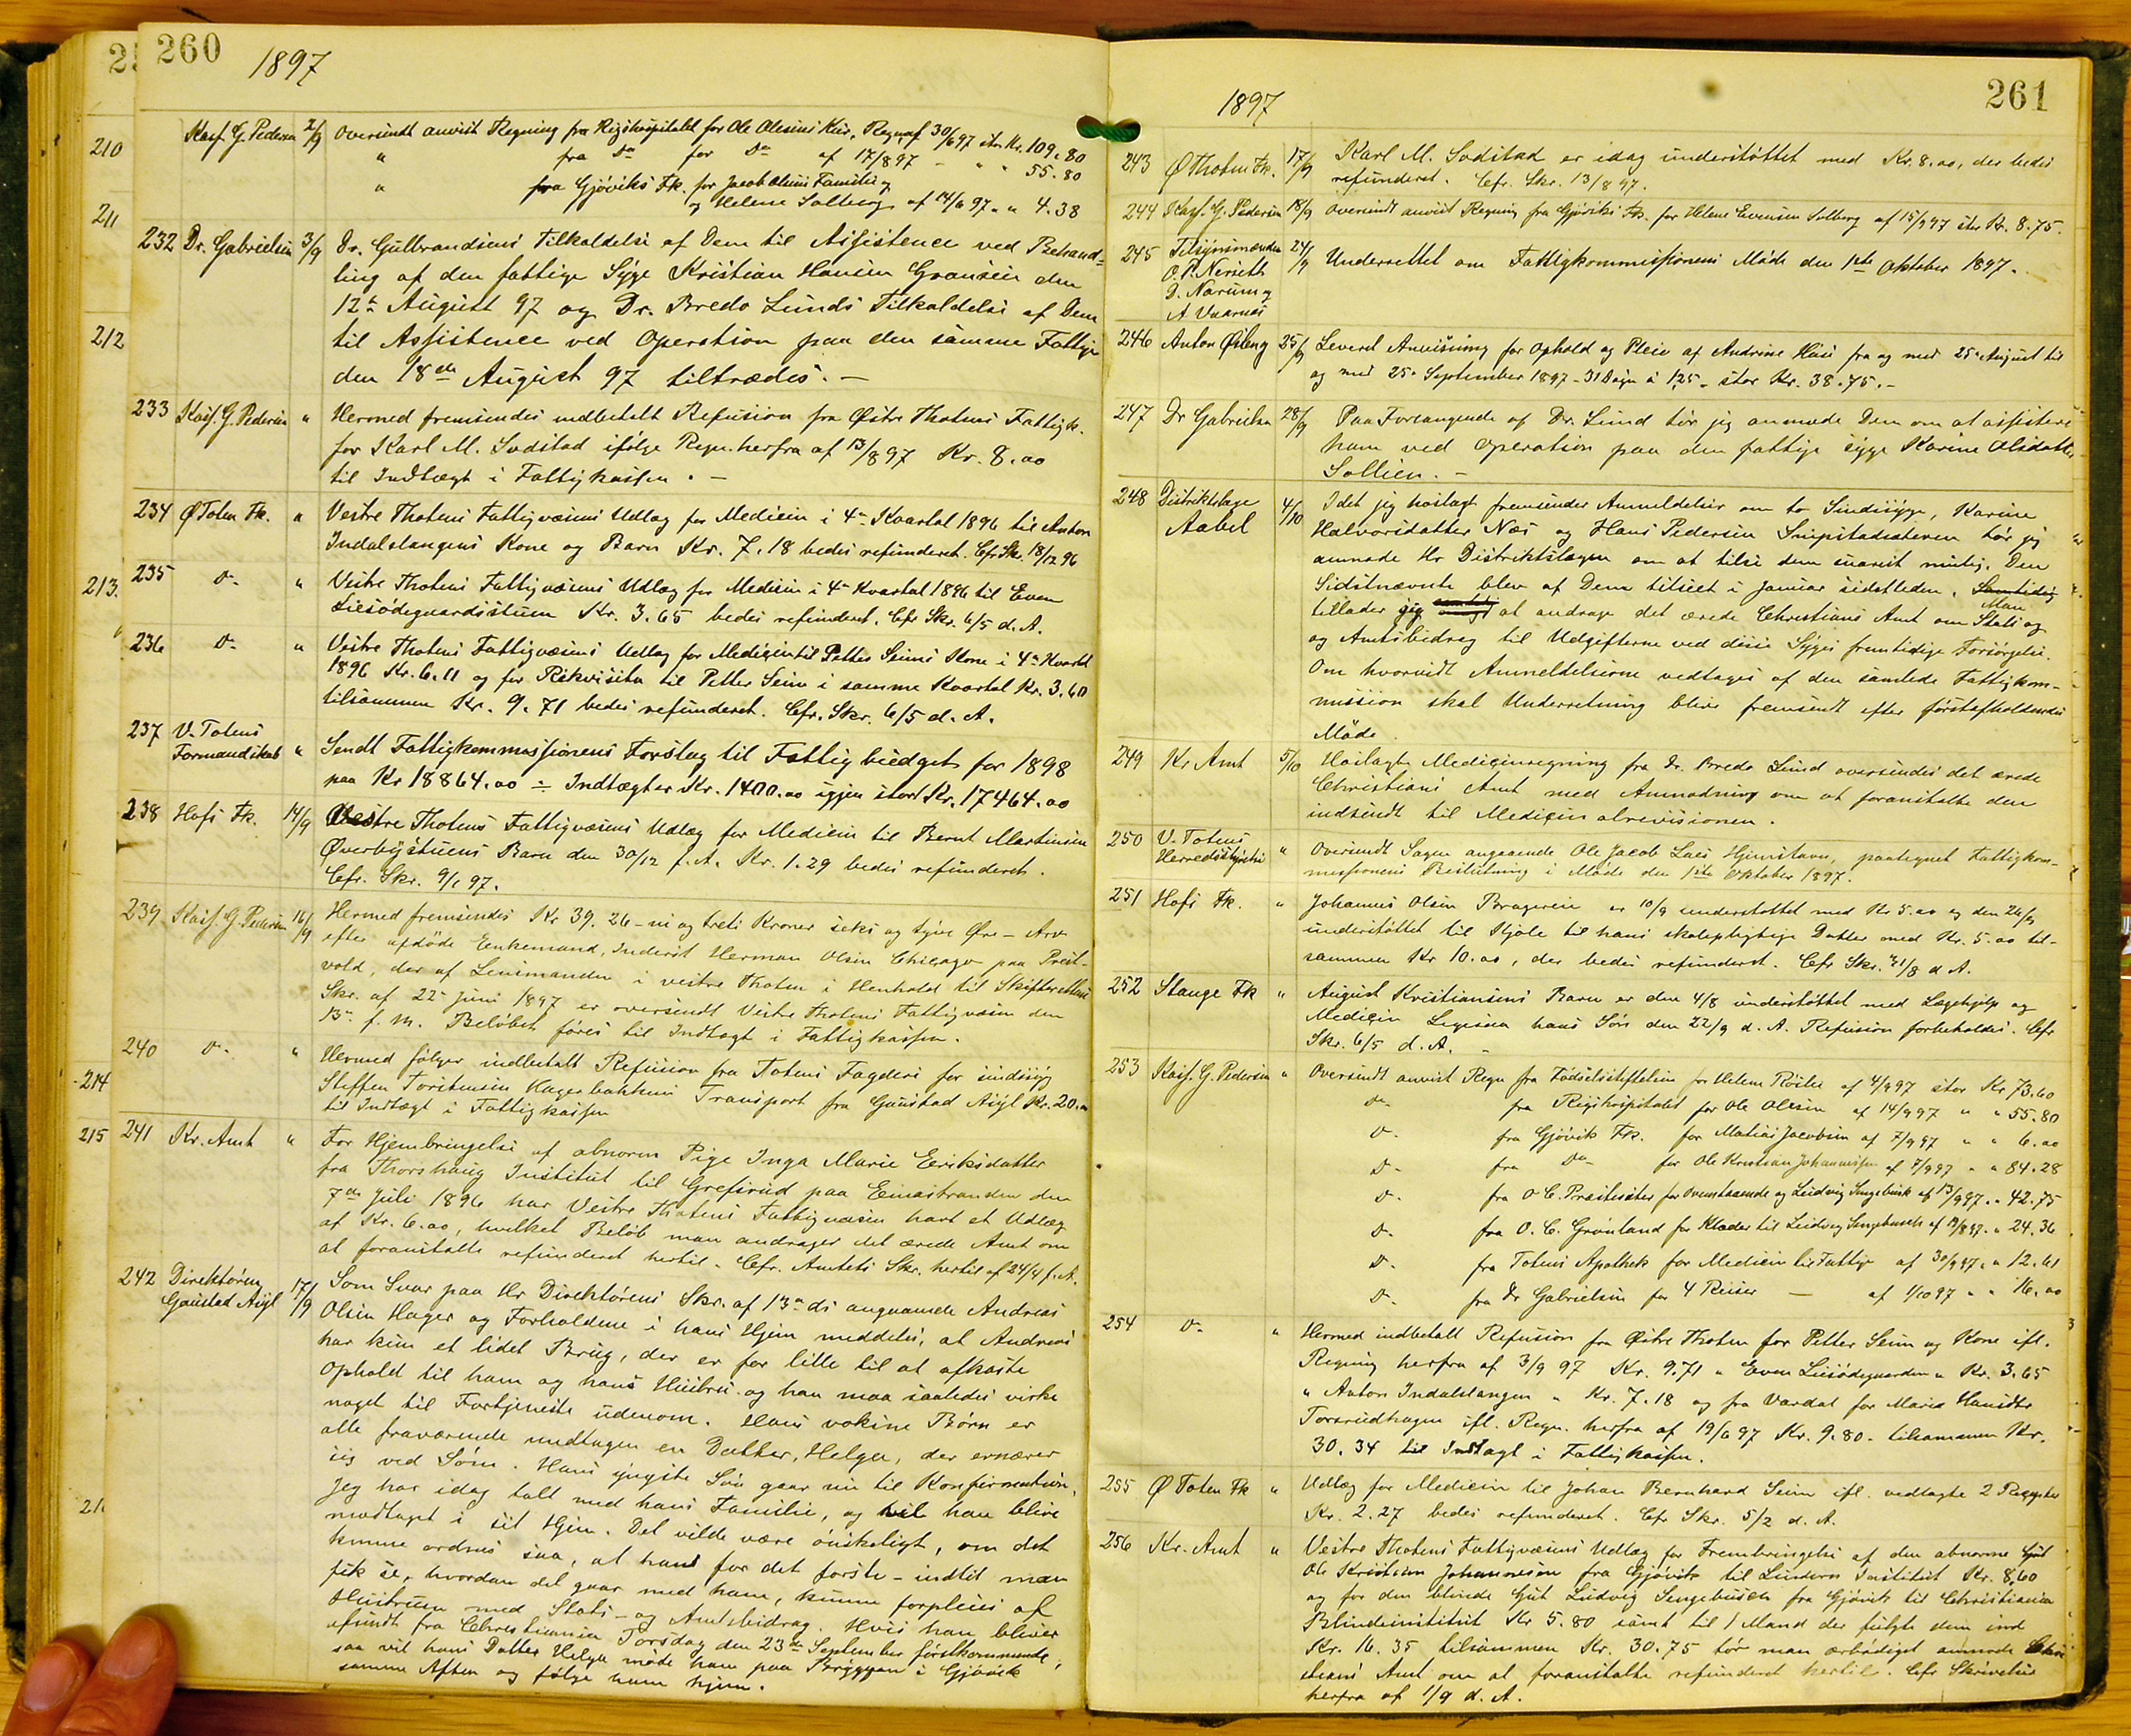 260
1897
210
Kasf. G. Pedersen 2/9 Oversendt anvist Regning fra Rigshospitalet for Ole Olesens Kur, Regn. af 30/6 97 stor Kr. 109.80
" fra Do for Do af 17/8 97 - " " 55.80
" fra Gjøviks Fk. for Jacob Familie og
og Helene Solberg af 14/6 97 " " 4.38
211
232 Dr. Gabrielsen 3/9 Dr. Gulbrandsens Tilkaldelse af Dem til Assistence ved Behand-
ling af den fattige Syge Kristian Hansen Gransein den
12te August 97 og Dr. Bredo Lunds Tilkaldelse af Dem
212
til Assistence ved Operation paa den samme Fattige
den 18de August 97 tiltrædes. —
233 Kasf. G. Pedersen " Hermed fremsendes indbetalt Refusion fra Østre Thotens Fattigk.
for Karl M. Sodstad ifølge Regn. herfra af 13/8 97 Kr. 8.00
til Indtægt i Fattigkassen. —
234 Ø Toten Fk. " Vestre Thotens Fattigvæsens Udlæg for Medicin i 4de Kvartal 1896 til Anton
Indalslangens Kone og Barn Kr. 7.18 bedes refunderet. Cfr Skr. 18/12 96
213.
235 Do " Vestre Thotens Fattigvæsens Udlæg for Medicin i 4de Kvartal 1896 til Even
Liesødegaardsstuen Kr. 3.65 bedes refunderet. Cfr Skr. 6/5 d. A.
236 Do " Vestre Thotens Fattigvæsens Udlæg for Medicin til Petter Seims Kone i 4de Kvartal
1896 Kr. 6.11 og for Rekvisita til Petter Seim i samme Kvartal Kr. 3.60
tilsammen Kr. 9.71 bedes refunderet. Cfr. Skr. 6/5 d. A.
237 V. Totens
Formandskab " Sendt Fattigkommissionens Forslag til Fattigbudget for 1898
paa Kr 18864.00 ÷ Indtægter Kr. 1400.00 igjen stort Kr. 17464.00
238 Hofs Fk. 14/9 Vestre Thotens Fattigvæsens Udlæg for Medicin til Bernt Martinsen
Øverbystuens Barn den 30/12 f. A. Kr. 1.29 bedes refunderet.
Cfr. Skr. 9/1 97.
239 Kasf. G. Pedersen 16/9 Hermed fremsendes Kr 39.26 - ni og treti Kroner seks og tyve Øre - Arv
efter afdøde Enkemand, Inderst Herman Olsen Chicago paa Prest-
vold, der af Lensmanden i vestre Thoten i Henhold til Skifterettens
Skr. af 22de Juni 1897 er oversendt Vestre Thotens Fattigvæsen den
13de f. M. Beløbet føres til Indtægt i Fattigkassen.
240 Do " Hermed følger indbetalt Refusion fra Totens Fogderi for sindssyg
214
Steffen Torstensen Hagebakkens Transport fra Gaustad Asyl Kr. 20.00
til Indtægt i Fattigkassen
215 241 Kr. Amt " For Hjembringelse af abnorm Pige Inga Marie Eriksdatter
fra Thorshaug Institut til Grefsrud paa Einastranden den
7de Juli 1896 har Vestre Thotens Fattigvæsen havt et Udlæg
af Kr. 6.00, hvilket Beløb man andrager det ærede Amt om
at foranstalte refunderet hertil. Cfr. Amtets Skr. hertil af 24/4 f. A.
242 Direktøren
Gaustad Asyl 17/9 Som Svar paa Hr Direktørens Skr. af 13de ds angaaende Andreas
Olsen Hager og Forholdene i hans Hjem meddeles, at Andreas
har kun et lidet Brug, der er for lille til at afkaste
Ophold til ham og hans Hustru og han maa saaledes virke
noget til Fortjeneste udenom. Hans voksne Børn er
alle fraværende undtagen en Datter, Helga, der ernærer
sig ved Søm. Hans yngste Søn gaar nu til Konfirmation.
Jeg har idag talt med hans Familie, og vil han blive
modtaget i sit Hjem. Det vilde være ønskeligt, om det
kunne ordnes saa, at hans for det første - indtil man
fik se, hvordan det gaar med ham, kunne forpleies af
Hustruen med Stats- og Amtsbidrag. Hvis han bliver
afsendt fra Christiania Torsdag den 23de September førstkommende,
saa vil hans Datter Helga møde ham paa Bryggen i Gjøvik
samme Aften og følge ham hjem.
261
1897
243 Ø Thoten Fk. 17/9 Karl M. Sodstad er idag understøttet med Kr. 8.00, der bedes
refunderet. Cfr. Skr. 13/8 97.
244 Kasf. G. Pedersen 18/9 Oversendt anvist Regning fra Gjøviks Fk. for Helene Evensen Solberg af 15/9 97 stor Kr. 8.75.
245 Tilsynsmænden
O. P. Nerseth
D. Narum og
A Vaarnæs
24/9 Underrettet om Fattigkommissionens Møde den 1ste Oktober 1897.
246 Anton Østeng 25/9 Leveret Anvisning for Ophold og Pleie af Andrine Huse fra og med 25de August til
og med 25de September 1897 - 31 Dage á 1,25 - stor Kr. 38.75. -
247 Dr Gabrielsen 28/9 Paa Forlangende af Dr. Lund tør jeg anmode Dem om at assistere
ham ved Operation paa den fattige syge Karine Olsdatter
Sollien. —
248 Distriktslæge
Aabel 4/10 Idet jeg hoslagt fremsender Anmeldelser om to Sindssyge, Karine
Halvorsdatter Næs og Hans Pedersen Snipstadsæteren tør jeg
anmode Hr Distriktslægen om at tilse dem snarest mulig. Den
Sidstnævnte blev af Dem tilseet i Januar sidstleden. Samtidig
Man
tillader jeg at andrage det ærede Christians Amt om Stats og
og Amtsbidrag til Udgifterne ved disse Syges fremtidige Forsørgelse.
Om hvorvidt Anmeldelserne vedtages af den samlede Fattigkom-
mission skal Underretning blive fremsendt efter førstafholdendes
Møde.
249 Kr Amt 5/10 Hoslagte Medicinregning fra Dr. Bredo Lund oversendes det ærede
Christians Amt med Anmodning om at foranstalte den
indsendt til Medicinalrevisionen.
250 V. Totens
Herredsstyrelse " Oversendt Sagen angaaende Ole Jacob Laes Hjemstavn, paategnet Fattigkom-
missionens Beslutning i Møde den 1ste Oktober 1897.
251 Hofs Fk. " Johannes Olsen Brageren er 10/9 understøttet med Kr 5.00 og den 26/9
understøttet til Kjole til hans skolepligtige Datter med Kr. 5.00 til-
sammen Kr 10.00, der bedes refunderet. Cfr Skr. 31/8 d A.
252 Stange Fk " August Kristiansens Barn er den 4/8 understøttet med Lægehjelp og
Medicin Ligesaa hans Søn den 22/9 d. A. Refusion forbeholdes. Cfr
Skr. 6/5 d. A. -
253 Kasf. G. Pedersen " Oversendt anvist Regn fra Fødselsstiftelsen for Helene Røste af 4/9 97 stor Kr 73.60
Do fra Rigshospitalet for Ole Olesen af 14/9 97 " " 55.80
Do fra Gjøvik Fk. for Matias Jacobsen af 7/9 97 " " 6.00
Do fra Do for Ole Kristian Johannessen af 7/9 97 " " 84.28
Do fra O C. Præstesæter for Ovenstaaende og Ludvig Sengebusch af 13/9 97 " " 42.75
Do fra O. C. Grønland for Klæder til Ludvig Sengebusch af 19/8 97 " " 24.36
Do fra Totens Apothek for Medicin til Fattige af 30/9 97 " " 12.61
Do fra Dr Gabrielsen for 4 Reiser — af 1/10 97 " " 16.00
254 Do " Hermed indbetalt Refusion fra Østre Thoten for Petter Seim og Kone ifl.
Regning herfra af 3/9 97 Kr. 9.71 " Even Liesødegaarden " Kr. 3.65
" Anton Indalslangen " Kr. 7.18 og fra Vardal for Maria Hansdtr
Torsrudhagen ifl. Regn. herfra af 19/6 97 Kr. 9.80 - tilsammen Kr.
30.34 til Indtægt i Fattigkassen.
255 Ø Toten Fk " Udlæg for Medicin til Johan Bernhard Seim ifl. vedlagte 2 Recepter
Kr. 2.27 bedes refunderet. Cfr Skr. 5/2 d. A.
256 Kr. Amt " Vestre Thotens Fattigvæsens Udlæg for Frembringelse af den abnorme Gut
Ole Kristian Johannesen fra Gjøvik til Lindern Institut Kr. 8,60
og for den blinde Gut Ludvig Sengebusch fra Gjøvik til Christiania
Blindeinstitut Kr 5.80 samt til 1 Mand der fulgte dem ind
Kr. 16.35 tilsammen Kr. 30.75 tør man ærbødigst anmode Chri-
stians Amt om at foranstalte refunderet hertil. Cfr Skrivelse
herfra af 1/9 d. A.